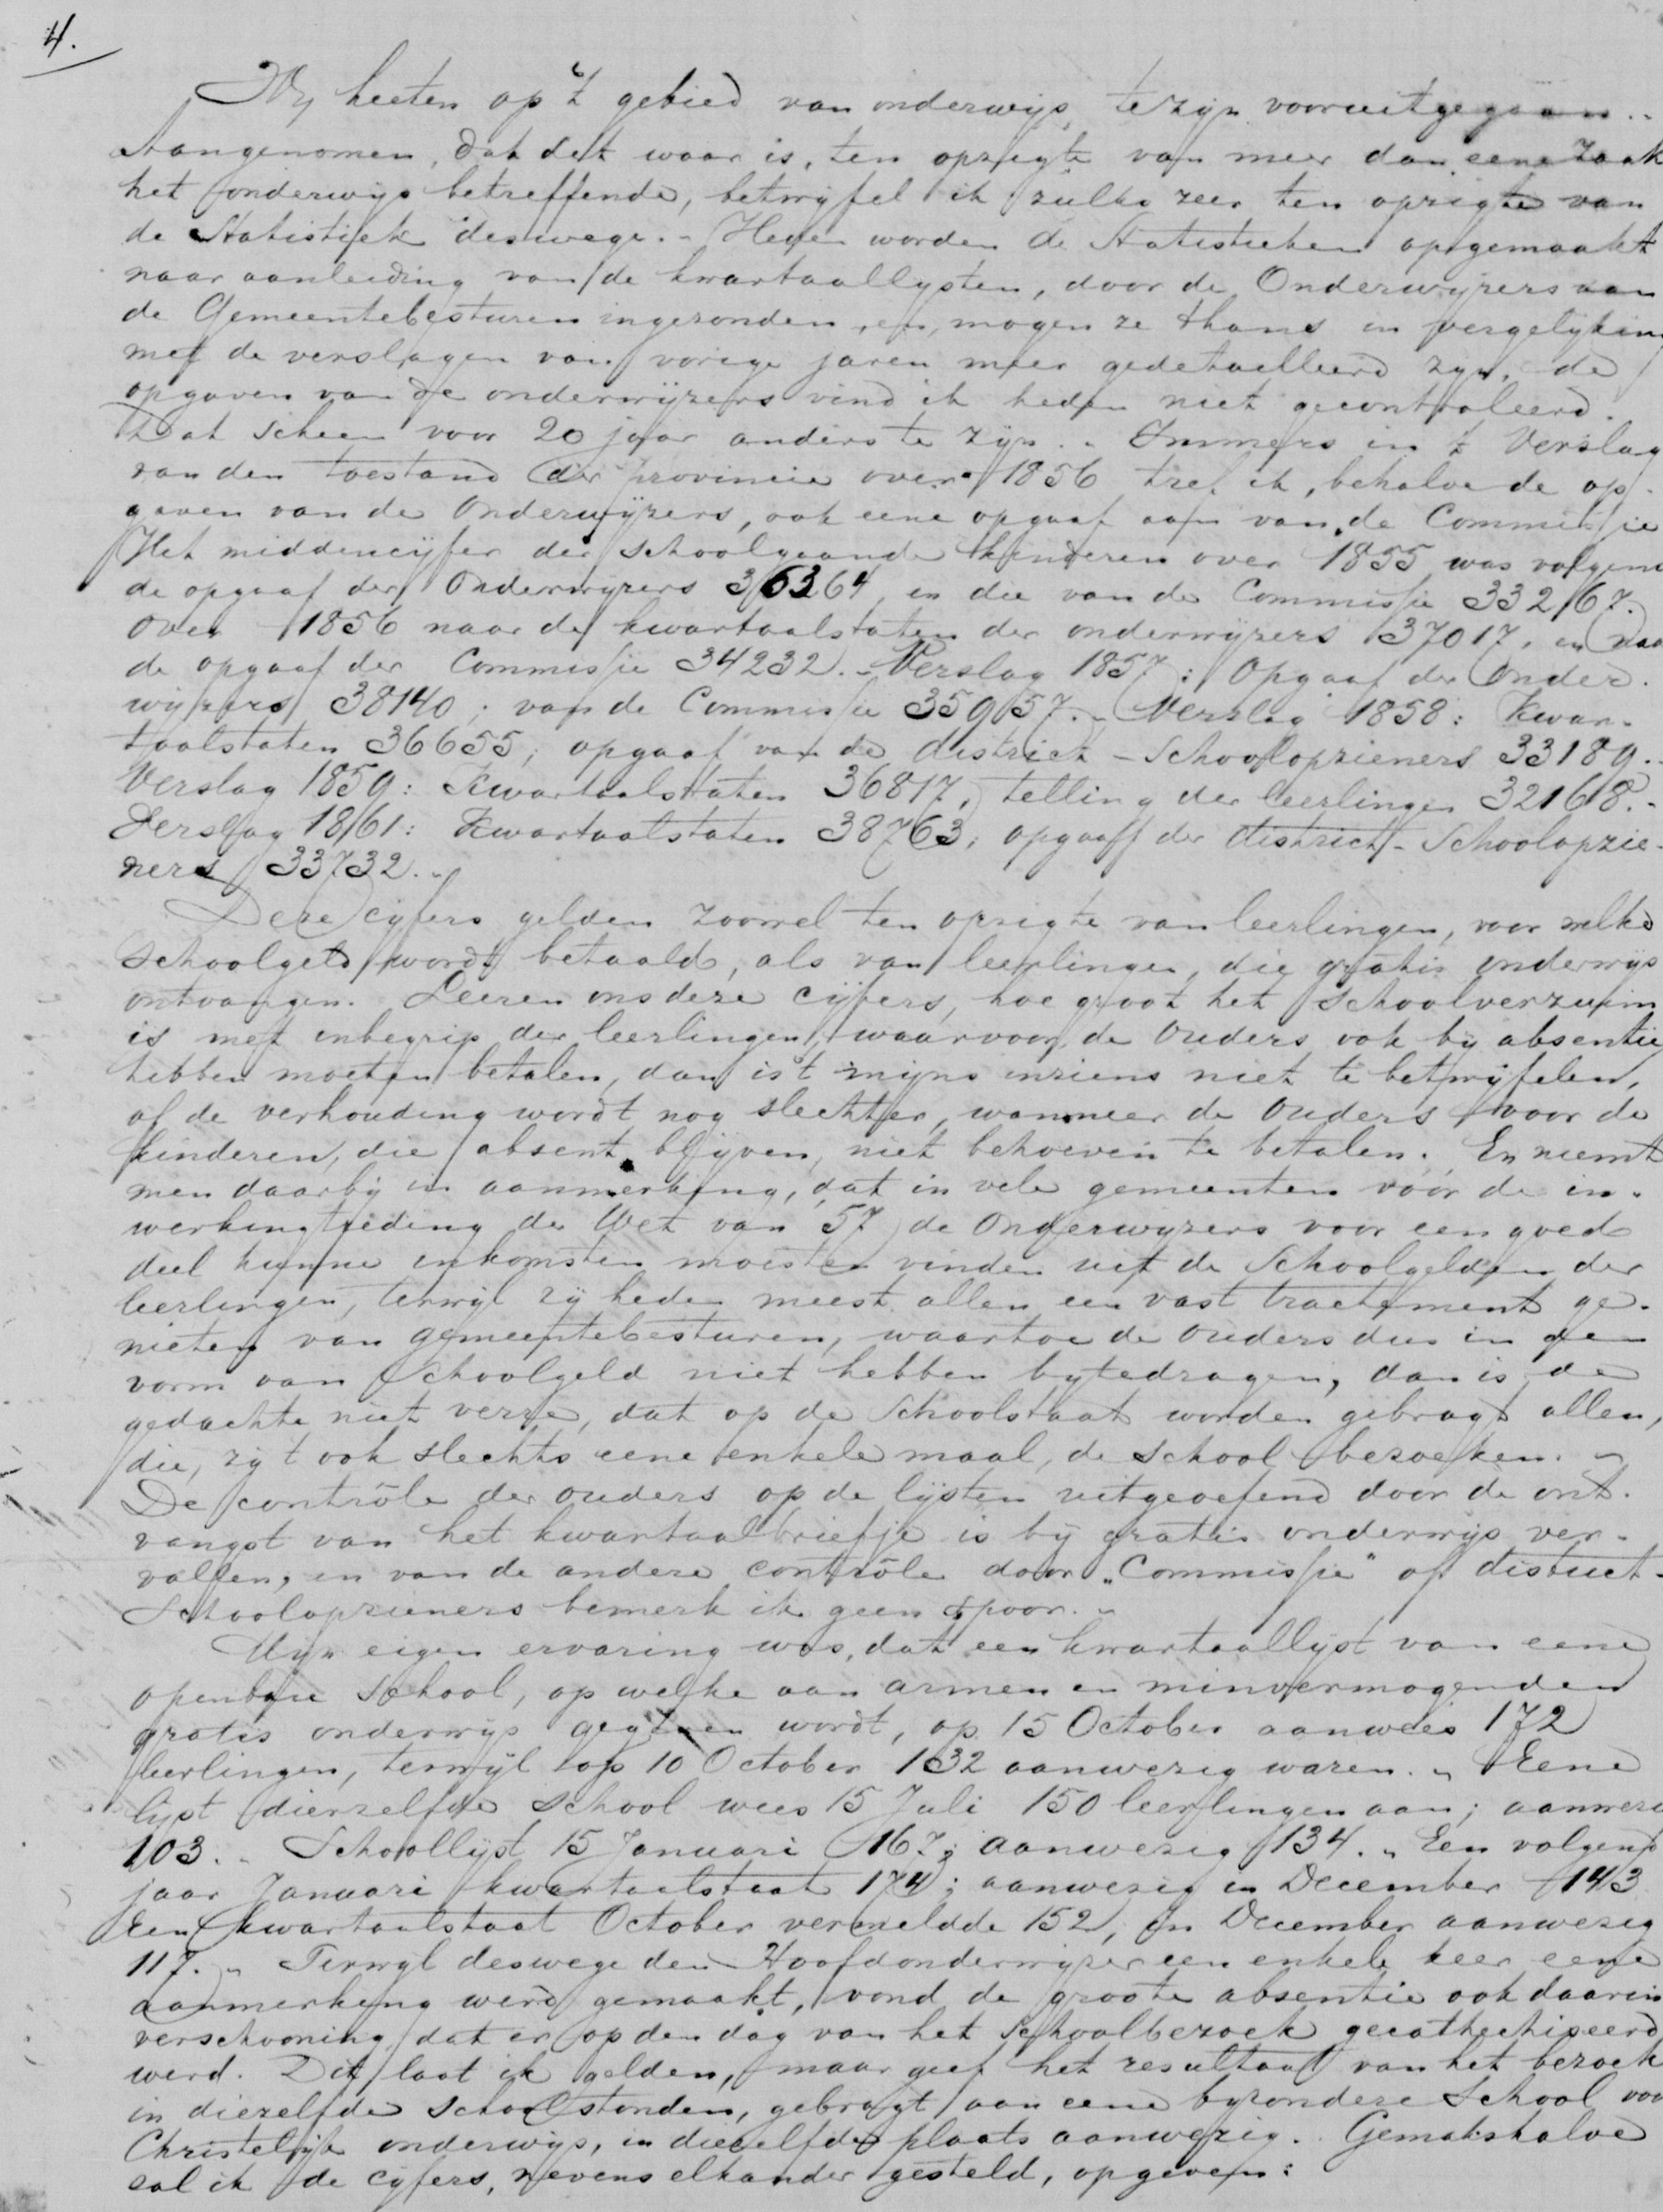 4.
Wij heeten op 't gebied van onderwijs te zijn vooruitgegaan. -
Aangenomen, dat dit waar is, ten opzigte van meer dan eene zaak
het onderwijs betreffende, betwijfel ik zulks zeer ten opzigte van
de Statistiek deswege. - Heden worden de Statistieken opgemaakt
naar aanleiding van de kwartaallysten, door de Onderwijzers aan
de Gemeentebesturen ingezonden, en, mogen ze thans in vergelijking
met de verslagen van vorige jaren meer gedetailleerd zyn, de
opgaven van de onderwijzers vind ik heden niet gecontroleerd.
Dat scheen voor 20 jaar anders te zijn. - Immers in 't Verslag
van den toestand der provincie over 1856 tref ik, behalve de op-
gaven van de Onderwijzers, ook eene opgaaf aan van de Commissie
Het middencijfer der schoolgaande kinderen over 1855 was volgens
de opgaaf der Onderwijzers 36364, en die van de Commissie 33267.
Over 1856 naar de kwartaalstaten der onderwijzers 37017, en naar
de opgaaf der Commissie 34232. - Verslag 1857: Opgaaf der Onder-
wijzers 38140; van de Commissie 35957. - Verslag 1858: Kwar-
taalstaten 36655; opgaaf van de district-Schoolopzieners 33189. -
Verslag 1859: Kwartaalstaten 36817, telling der leerlingen 32168. -
Verslag 1861: Kwartaalstaten 38763; opgaaf der district-Schoolopzie-
ners 33732. -
Deze cijfers gelden zoowel ten opzigte van leerlingen, voor welke
schoolgeld wordt betaald, als van leerlingen, die gratis onderwijs
ontvangen. Leeren ons deze cijfers, hoe groot het schoolverzuim
is met inbegrip der leerlingen, waarvoor de Ouders ook bij absentie
hebben moeten betalen, dan is 't mijns inziens niet te betwijfelen,
of de verhouding wordt nog slechter, wanneer de Ouders voor de
kinderen, die absent blijven, niet behoeven te betalen. En neemt
men daarbij in aanmerking, dat in vele gemeenten vóór de in-
werkingtreding der Wet van 57 de Onderwijzers voor een goed
deel hunne inkomsten moesten vinden uit de Schoolgelden der
leerlingen, terwijl zij heden meest allen een vast tractement ge-
nieten van gemeentebesturen, waartoe de ouders dus in den
vorm van Schoolgeld niet hebben bytedragen, dan is de
gedachte niet verre, dat op de Schoolstaat worden gebragt allen,
die, zij 't ook slechts eene enkele maal, de school bezoeken. -
De contrôle der ouders op de lijsten uitgeoefend door de ont-
vangst van het kwartaalbriefje is bij gratis onderwijs ver-
vallen, en van de andere contrôle door „Commissie" of district-
Schoolopzieners bemerk ik geen spoor. -
Mijn eigen ervaring was, dat een kwartaallijst van eene
openbare school, op welke aan armen en minvermogenden
gratis onderwijs gegeven wordt, op 15 October aanwees 172
leerlingen, terwijl op 10 October 132 aanwezig waren. - Eene
lijst dierzelfde school wees 15 Juli 150 leerlingen aan; aanwezig
103. - Schoollijst 15 Januari 167; aanwezig 134. - Een volgend
jaar Januari kwartaalstaat 174; aanwezig in December 143
Een kwartaalstaat October vermeldde 152, in December aanwezig
117. - Terwyl deswege den Hoofdonderwijzer een enkele keer eene
aanmerking werd gemaakt, vond de groote absentie ook daarin
verschooning dat er op den dag van het Schoolbezoek gecathechiseerd
werd. Dit laat ik gelden, maar geef het resultaat van het bezoek
in diezelfde schoolstonden, gebragt aan eene byzondere School voor
Christelijk onderwijs, in diezelfde plaats aanwezig. Gemakshalve
zal ik de cijfers, nevens elkander gesteld, opgeven: